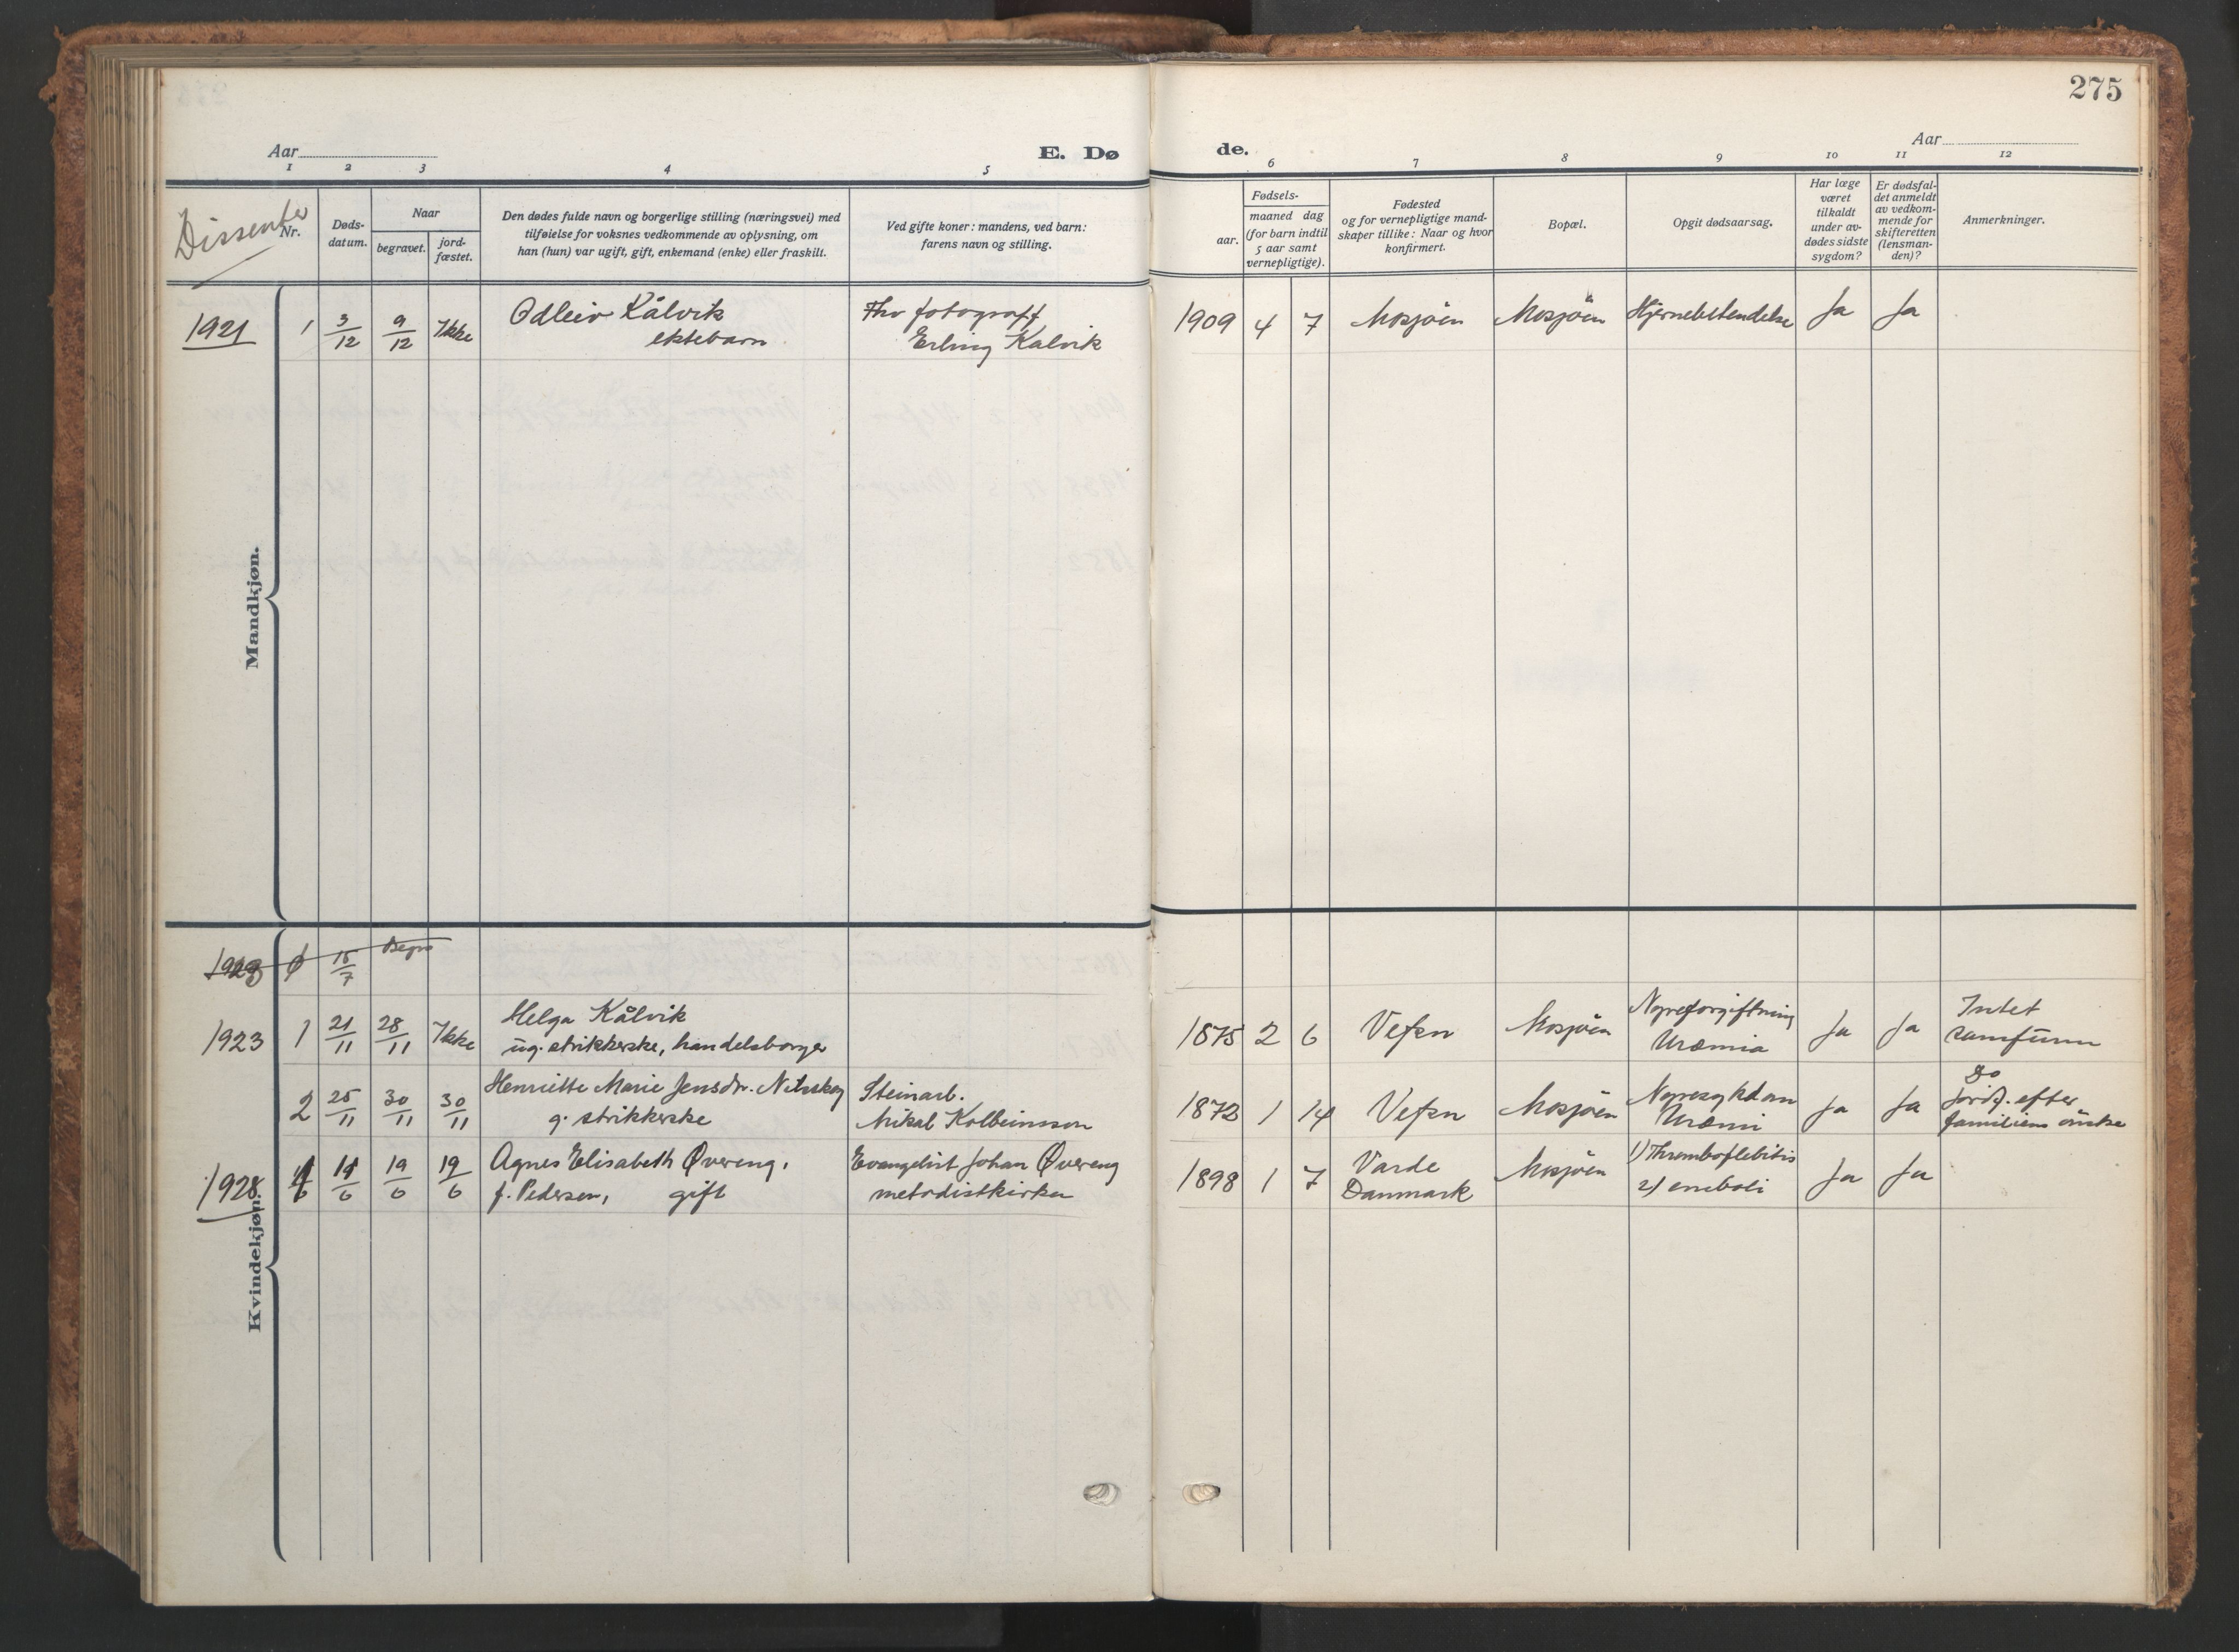 275
Aar
E. Dø
de.
Aar
1 2 3 4 5 6 7 8 9 10 11 12
Dissenter
Nr.
Døds-
datum.
Naar
begravet.
jord-
fæstet.
Den dødes fulde navn og borgerlige stilling (næringsvei) med
tilføielse for voksnes vedkommende av oplysning, om
han (hun) var ugift, gift, enkemand (enke) eller fraskilt.
Ved gifte koner: mandens, ved barn:
farens navn og stilling.
Fødsels-
aar.
maaned dag
(for barn indtil
5 aar samt
vernepligtige).
Fødested
og for vernepligtige mand-
skaper tillike: Naar og hvor
konfirmert.
Bopæl.
Opgit dødsaarsag.
Har læge
været
tilkaldt
under av-
dødes sidste
sygdom?
Er dødsfal-
det anmeldt
av vedkom-
mende for
skifteretten
(lensman-
den)?
Anmerkninger.
Mandkjøn.
1921 1 3/12 9/12 Ikke Odleiv Kålvik
ektebarn
Fhv fotograff
Erling Kalvik
1909 4 7 Mosjöen Mosjöen Hjernebetendelse Ja Ja
Kvindekjøn.
15/7 Begr
1923 1 21/11 28/11 Ikke Helga Kålvik
ug. strikkerske, handelsborger
1875 2 6 Vefsn Mosjöen Nyreforgiftning
Uræmia
Ja Ja Intet
samfunn
2 25/11 30/11 30/11 Henriette Marie Jensdr.
g. strikkerske
Steinarb.
Mikal Kolbeinsson
1872 1 14 Vefsn Mosjöen Nyresykdom
Uræmi
Ja Ja Do
Jordf. efter
familiens önske
1928 1 14/6 19/6 19/6 Agnes Elisabeth Øvereng,
f. Pedersen, gift
Evangelist Johan Øvereng
metodistkirken
1898 1 7 Varde
Danmark
Mosjöen 1) Thromboflebitis
2) emboli
Ja Ja